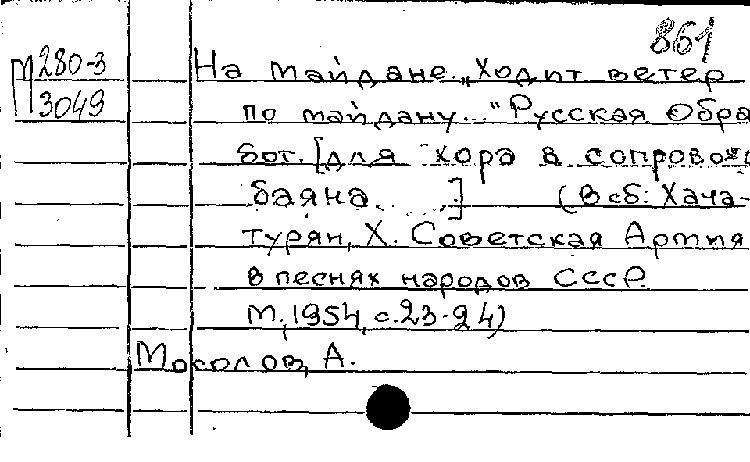 861
М 280-3
3049
На майдане. „Ходит ветер
по майдану..." Русская Обра
бот. [для хора в сопровож
баяна ...] (В сб: Хача-
турян, Х. Советская Армия
в песнях народов СССР.
М., 1954, с.23-24)
Мосолов, А.